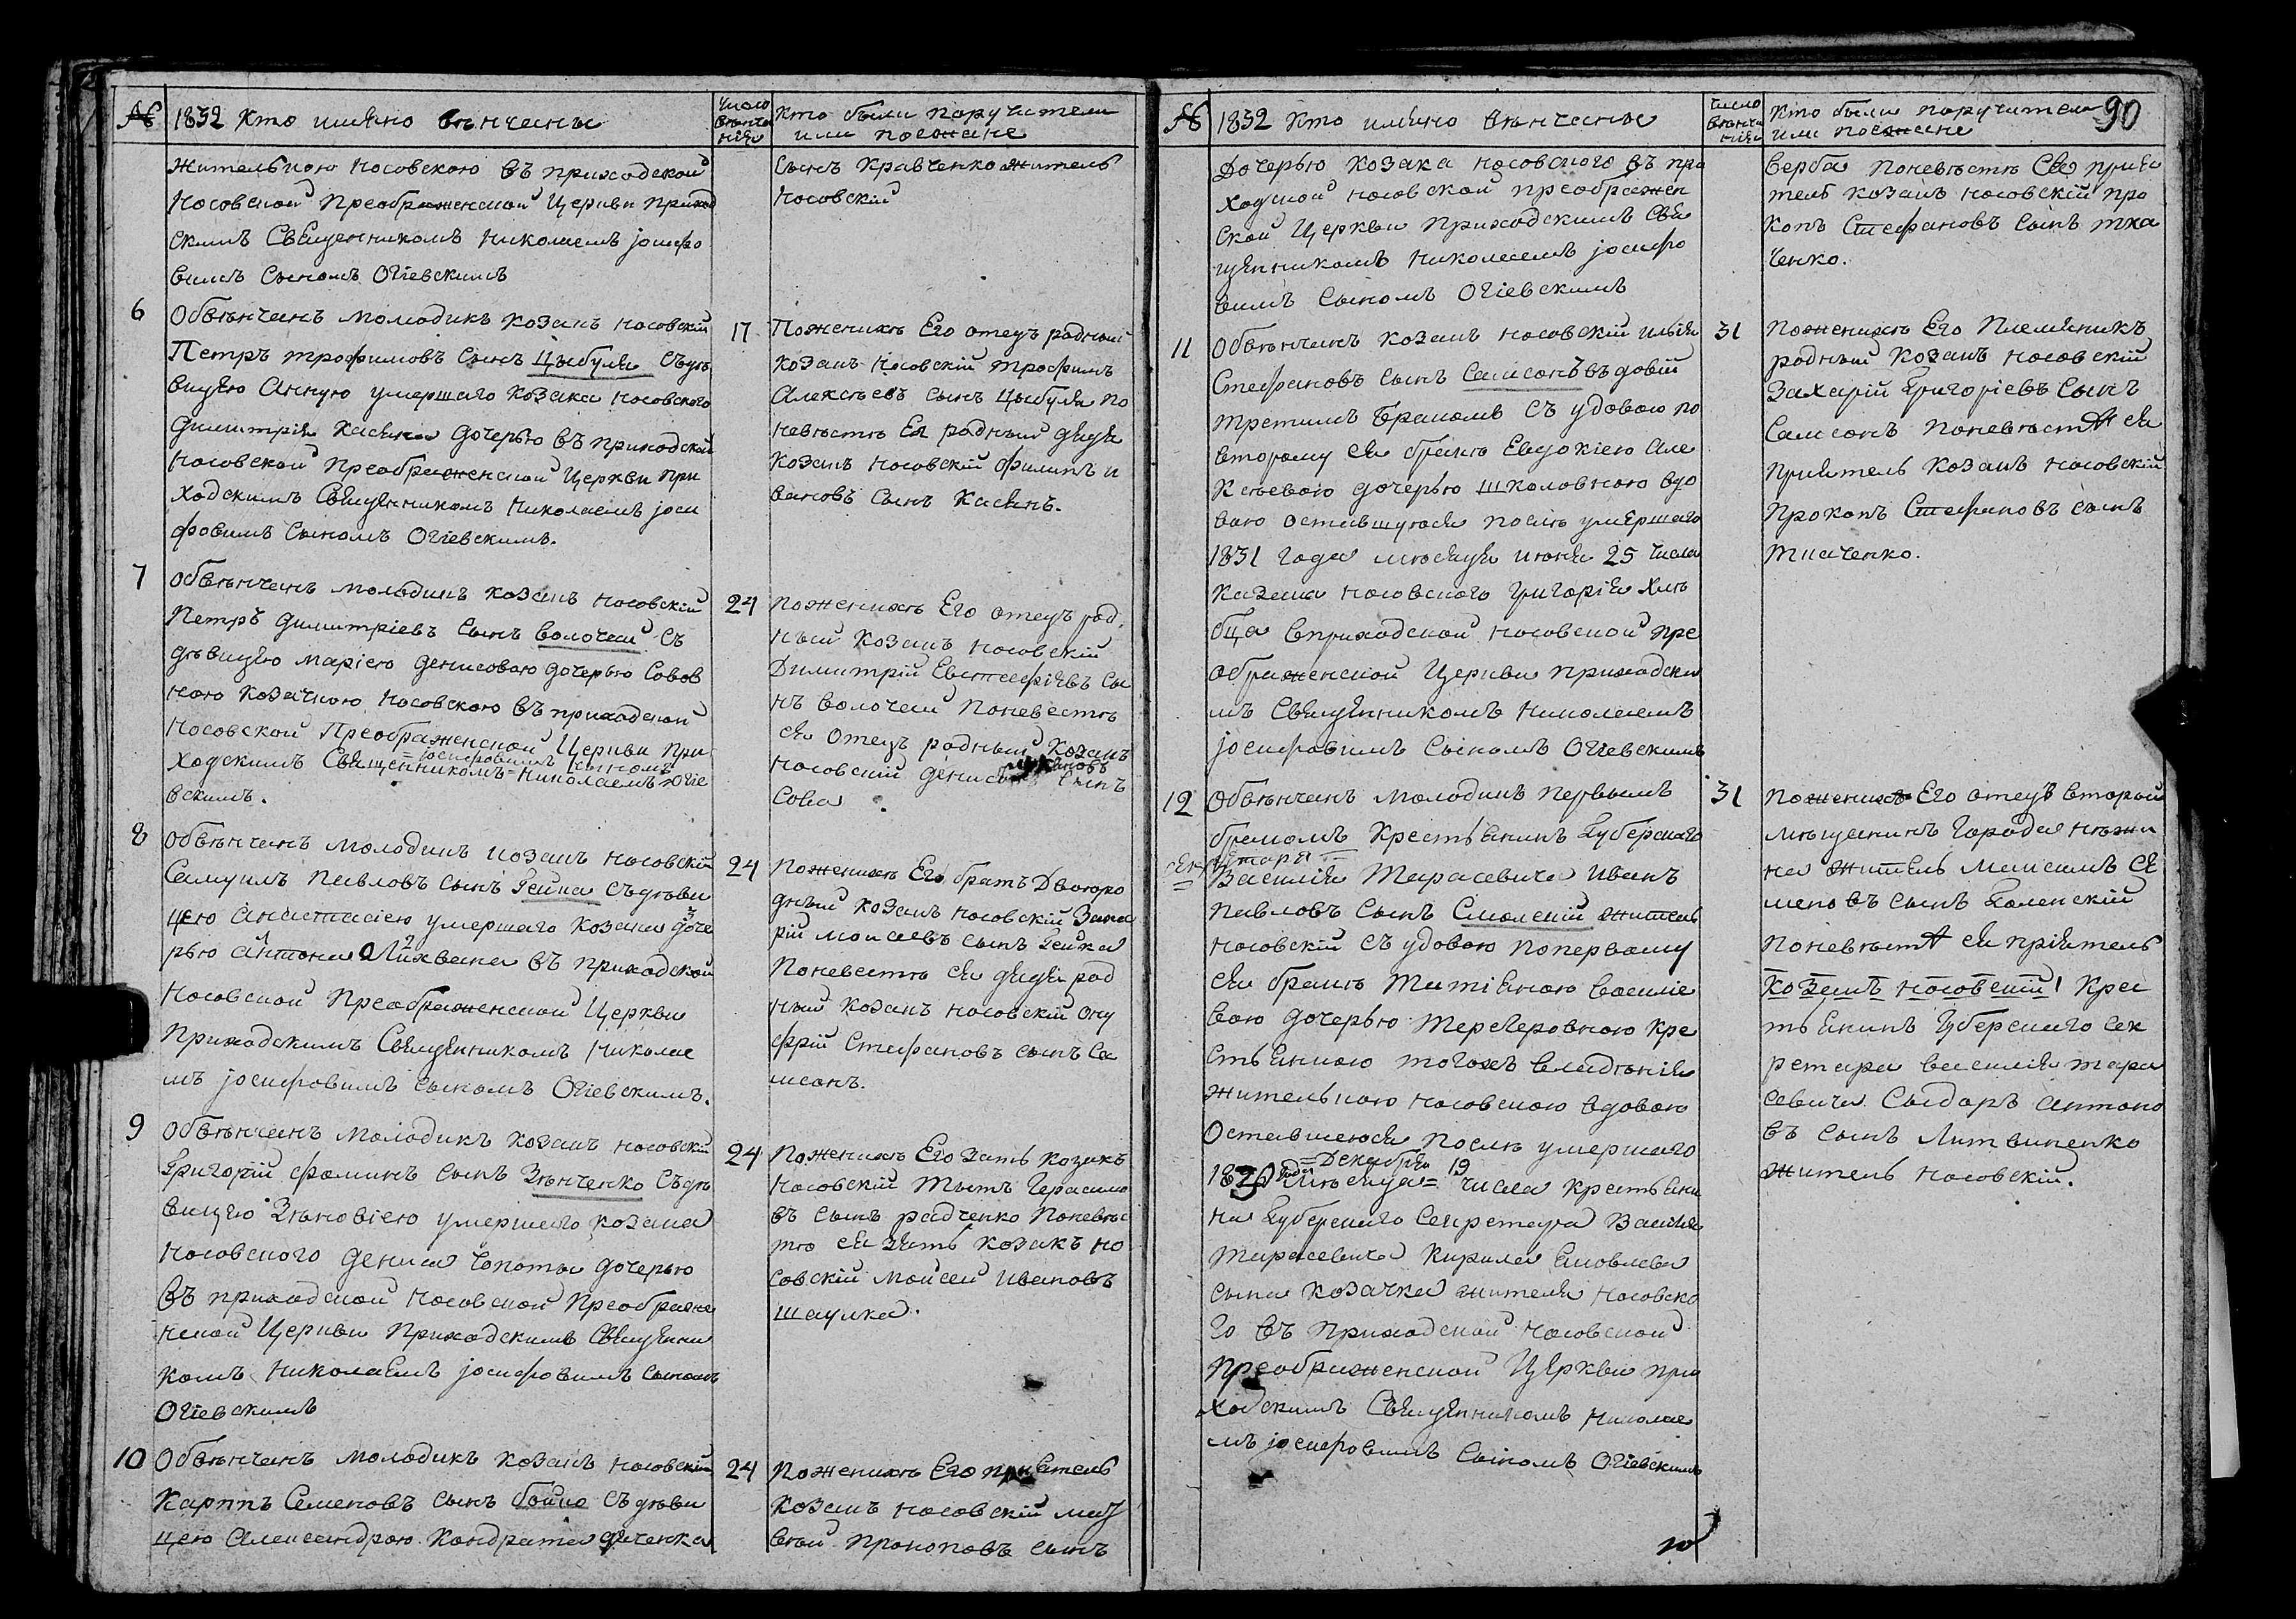 № 1832 Кто имяно вѣнчены
число вѣнчанія
Кто были поручители
или поезжане
жительною Носовскою въ приходской
Носовской Преображенской Церкви приход
скимъ Священникомъ Николаемъ Іосифо
вимъ Сыномъ Огіевскимъ
Сынъ Кравченко житель
Носовскій
6
Обвѣнчанъ молодикъ козакъ Носовскій
Петръ трофимовъ Сынъ Цыбуля Съдѣ
вицею Анною умершаго козака Носовского
Димитрія Касяна дочерью въ приходской
Носовской Преображенской Церкви при
ходскимъ Священникомъ Николаемъ Іоси
фовимъ Сыномъ Огіевскимъ.
17
Поженихѣ Его отецъ родный
козакъ Носовскій трофимъ
Алексѣевъ Сынъ Цыбуля по
невѣстѣ Ея родный дядя
козакъ Носовскій филипъ и
вановъ Сынъ Касянъ.
7
Обвѣнчанъ молодикъ козакъ Носовскій
Петръ Димитріевъ Сынъ Волочай Съ
дѣвицею Маріею Денисовою дочерью Совов
ною козачкою Носовскою въ приходской
Носовской Преображенской Церкви при
=Іосифовимъ Сыномъ=
ходскимъ Священникомъ=Николаемъ Огіе
вскимъ.
24
Поженихѣ Его отецъ род
ный козакъ Носовскій
Димитрій Евстафіевъ Сы
нъ Волочай Поневестѣ
ея Отецъ родный козакъ
Носовскій Денисъ Сынъ
Сова
8
Обвѣнчанъ молодикъ козакъ Носовскій
Самуилъ Павловъ Сынъ Гейка Съдѣви
цею Анастасіею умершаго козака доче
рью Антона Лихвана въ приходской
Носовской Преображенской Церкви
Приходскимъ Священникомъ Николае
мъ Іосифовимъ Сыномъ Огіевскимъ.
24
Поженихѣ Его братъ Двоюро
дный козакъ Носовскій Заха
рій Моисеевъ Сынъ Гейка
Поневестѣ ея дядя род
ный козакъ Носовскій Ону
фрій Стефановъ Сынъ Са
мсонъ.
9
Обвѣнчанъ Молодикъ козакъ Носовскій
Григорій фоминъ Сынъ Зѣнченко Съдѣ
вицею Зѣновіею умершаго козака
Носовского Дениса Чопоты дочерью
въ приходской Носовской Преображе
нской Церкви Приходскимъ Священи
комъ Николаемъ Іосифовимъ Сыномъ
Огіевскимъ
24
Поженихѣ Его зять козакъ
Носовскій Титъ Герасимо
въ Сынъ радченко Поневѣс
тѣ ея зять козакъ но
совскій Моисей Ивановъ
шаулка.
10
Обвѣнчанъ молодикъ козакъ Носовскій
Карппъ Семеновъ Сынъ бойко Съдѣви
цею Александрою Кондрата
24
Поженихѣ Его пріятель
козакъ Носовскій мат
вѣй Прокоповъ Сынъ
№ 1832 Кто имяно вѣнчены
число вѣнчанія
Кто были поручители
или поезжане
90
Дочерью козака Носовского въ при
ходской Носовской преображен
ской Церкви Приходскимъ Свя
щенникомъ Николаемъ Іосифо
вимъ Сыномъ Огіевскимъ
Верба Поневѣстѣ Ея прия
тель козакъ Носовскій про
копъ Стефановъ Сынъ тка
ченко.
11
Обвѣнчанъ козакъ Носовскій Илія
Стефановъ Сынъ Самсонъ въдовій
третимъ бракомъ Съ удовою по
второму ея бракѣ Евдокіею Але
ксѣевою дочерью школовною вдо
вою оставшуюся послѣ умершаго
1831 года мѣсяця июня 25 числа
казака Носовского Григорія Хлѣ
бца Вприходской Носовской пре
ображенской Церкви приходски
мъ Священникомъ Николаемъ
Іосифовимъ Сыномъ Огіевскимъ
31
Поженихѣ Его Племяникъ
родный козакъ Носовскій
Захарій Григоріевъ Сынъ
Самсонъ Поневѣстѣ ея
пріятель козакъ Носовскій
Прокопъ Стефановъ сынъ
Ткаченко.
12
Обвѣнчанъ Молодикъ первымъ
бракомъ Крестьянинъ Губерскаго
секретаря
Василія Тарасевича Иванъ
Павловъ Сынъ Смолскій житель
Носовскій Съ удовою Попервому
ея бракѣ Татіяною Василіе
вою дочерью Терещеровною кре
стьянкою тогожъ владѣнія
жительною Носовскою вдовою
Оставшеюся Послѣ умершаго
=Декабря 19
1830 года мѣсяца= числа крестьяни
на Губерскаго Секретара Василія
Тарасевича Кирила Яковлева
Сына козачка жителя Носовско
го въ приходской Носовской
преображенской Церкви при
ходскимъ Священникомъ Николае
мъ Іосифовимъ Сыномъ Огіевскимъ
31
Поженихѣ Его отецъ вторый
мѣщанинъ города Нѣжи
на житель Максимъ Се
меновъ Сынъ Каленскій
Поневѣстѣ ея пріятель
козакъ Носовскій Крес
тьянинъ Губерскаго сек
ретара Василія тара
севича Сыдаръ Антоно
въ Сынъ Литвиненко
житель Носовскій.